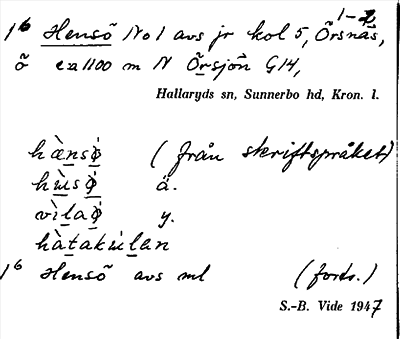 1–2
1⁶ Hensö No 1 avs jr kol 5, Örsnäs,
ö ca 1100 m N Örsjön G14,
Hallaryds sn, Sunnerbo hd, Kron. l.
hæ̀nsǿ (från skriftspråket)
hùsǿ ä.
vìlaǿ y.
hàtakúlan
1⁶ Hensö avs ml (forts.)
S.-B. Vide 1947